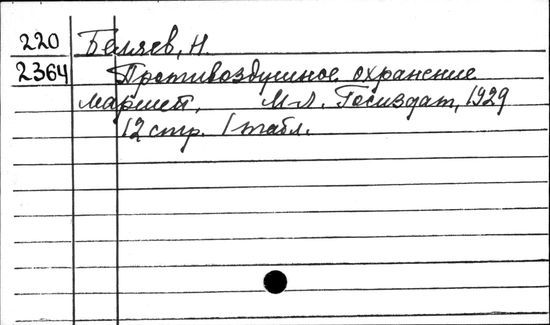 220 Беляев, Н.
2364 Противоздушное охранение
маршей, М-Л. Госиздат, 1929
12 стр. 1 табл.